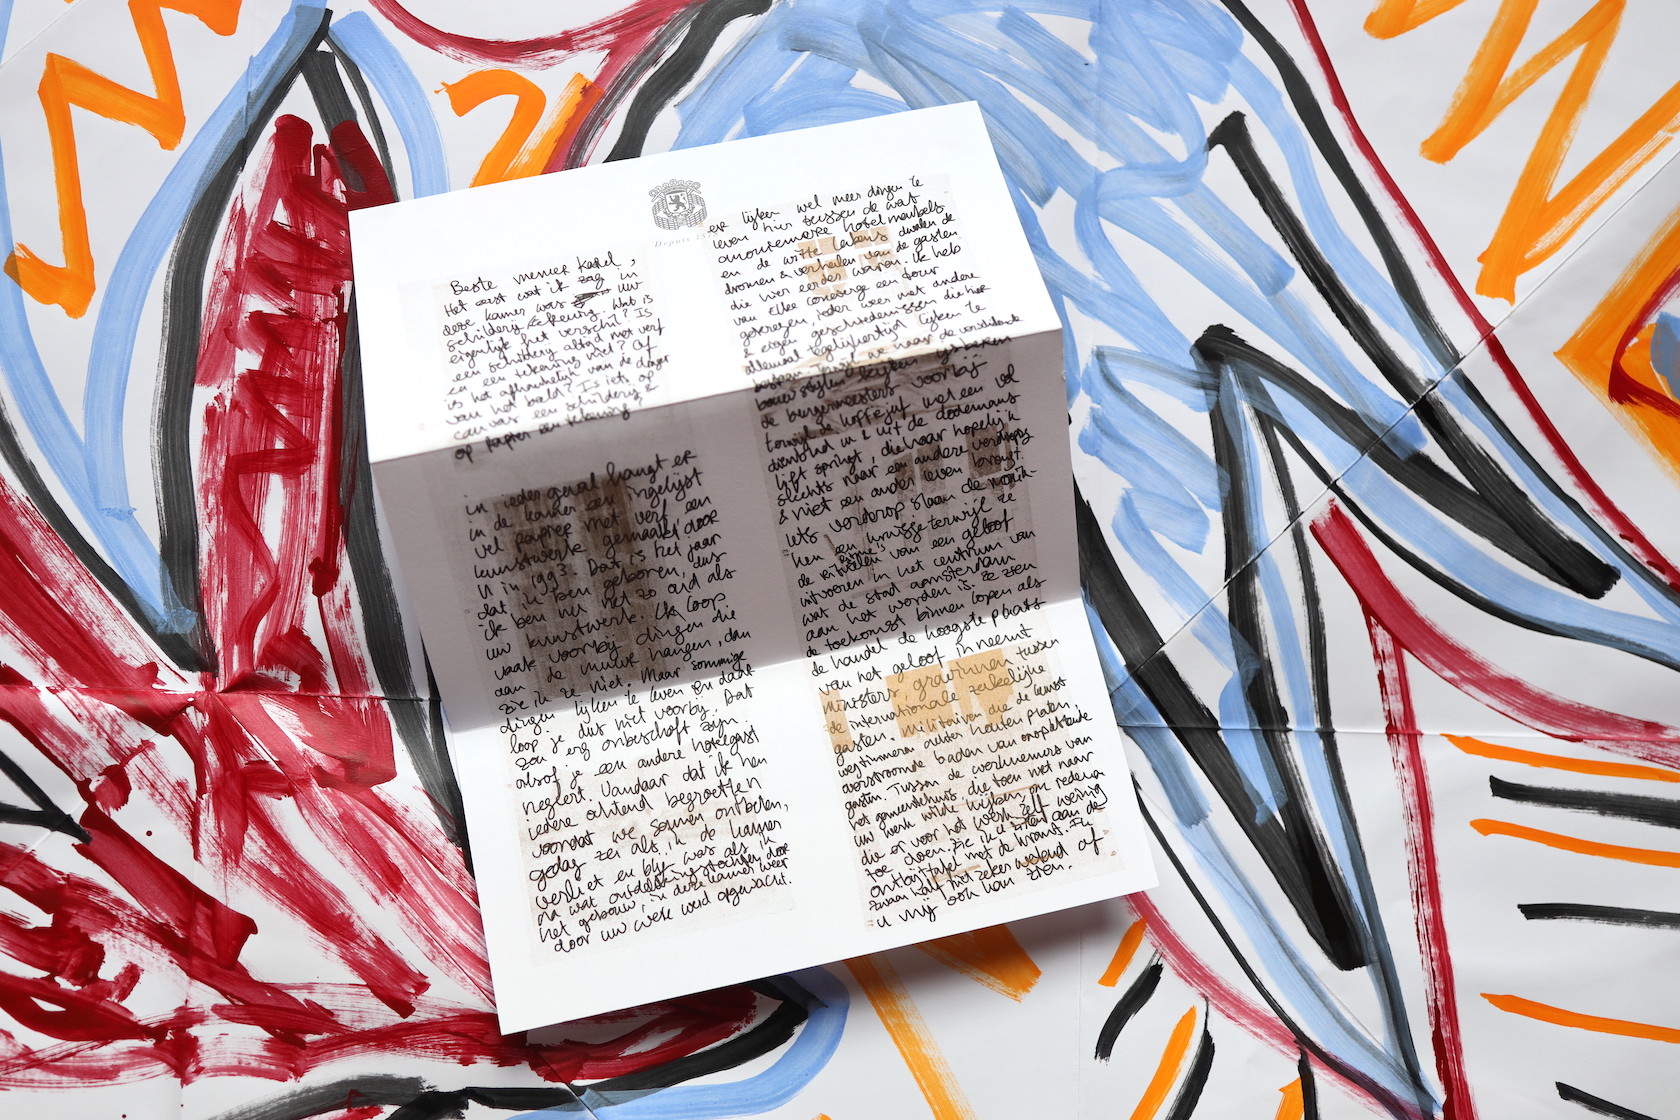 Depuis
Beste meneer Karel,
Het eerst wat ik zag in
deze kamer was uw
schilderij/tekening. Wat is
eigenlijk het verschil? Is
een schilderij altijd met verf
en een tekening niet? Of
is het afhankelijk van de drager
van het beeld? Is iets op
canvas een schilderij &
op papier een tekening
in ieder geval hangt er
in de kamer een ingelijst
vel papier met verf een
kunstwerk gemaakt door
U in 1993. Dat is het jaar
dat ik ben geboren, dus
ik ben nu net zo oud als
uw kunstwerk. Ik loop
vaak voorbij dingen die
aan de muur hangen, dan
zie ik ze niet. Maar sommige
dingen lijken te leven en daar
loop je dus niet voorby. Dat
zou erg onbeschoft zijn.
alsof je een andere hotelgast
negeert. Vandaar dat ik hen
iedere ochtend begroette
voordat we samen ontbeten,
gedag zei als ik de kamer
verliet en blij was als ik
na wat ontdekkingstochten door
het gebouw, in deze kamer weer
door uw werk werd opgewacht.
er lijken wel meer dingen te
leven hier tussen de wat
anonieme hotel meubels
en de witte lakens dwalen de
dromen & verhalen van de gasten
die hier eerder waren. Ik heb
van elke conciërge een tour
gekregen, ieder weer met andere
& eigen geschiedenissen die hier
allemaal tegelijkertijd lijken te
bouwstylen kijken
de burgermeesters voorbij
terwijl de koffiejuf met een vol
dienblad in & uit de dodemans
lift springt, die haar hopelijk
slechts naar een andere verdieping
& niet een ander leven brengt.
iets verderop slaan de
hen een kruisje terwijl ze
de rituelen van een geloof
uitvoeren in het centrum van
wat de stad amsterdam
aan het worden is. Ze zien
de toekomst binnen lopen als
de handel de hoogste plaats
van het geloof in neemt
Ministers, graven/innen tussen
de internationale zakelijke
gasten. militairen die de kunst
wegtimmeren achter houten platen,
overstroomde baden van onoplettende
gasten. Tussen de werknemers van
het gemeentehuis die toen niet naar
uw werk wilde kijken, om redenen
die er voor het werk zelf weinig
toe doen. zie ik u zitten aan de
ontbijttafel met de krant. Ik
zwaai half niet zeker wetend of
u mij ook kan zien.